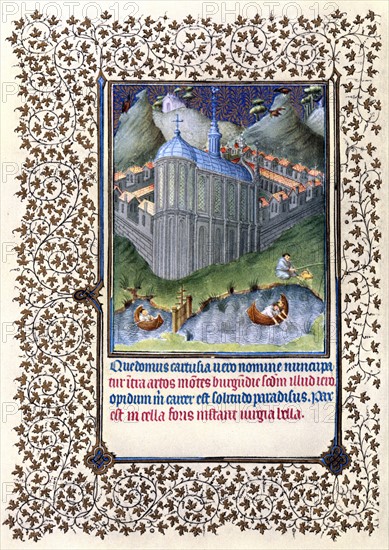 Que domus cartusia vero nomine nuncupa
tur ītra artos mōtes burgūdie scdm illud iero.
opidum m̄ carcer est solitudo paradisus. Pax
est in cella foris instant iurgia bella.
PHOTO12